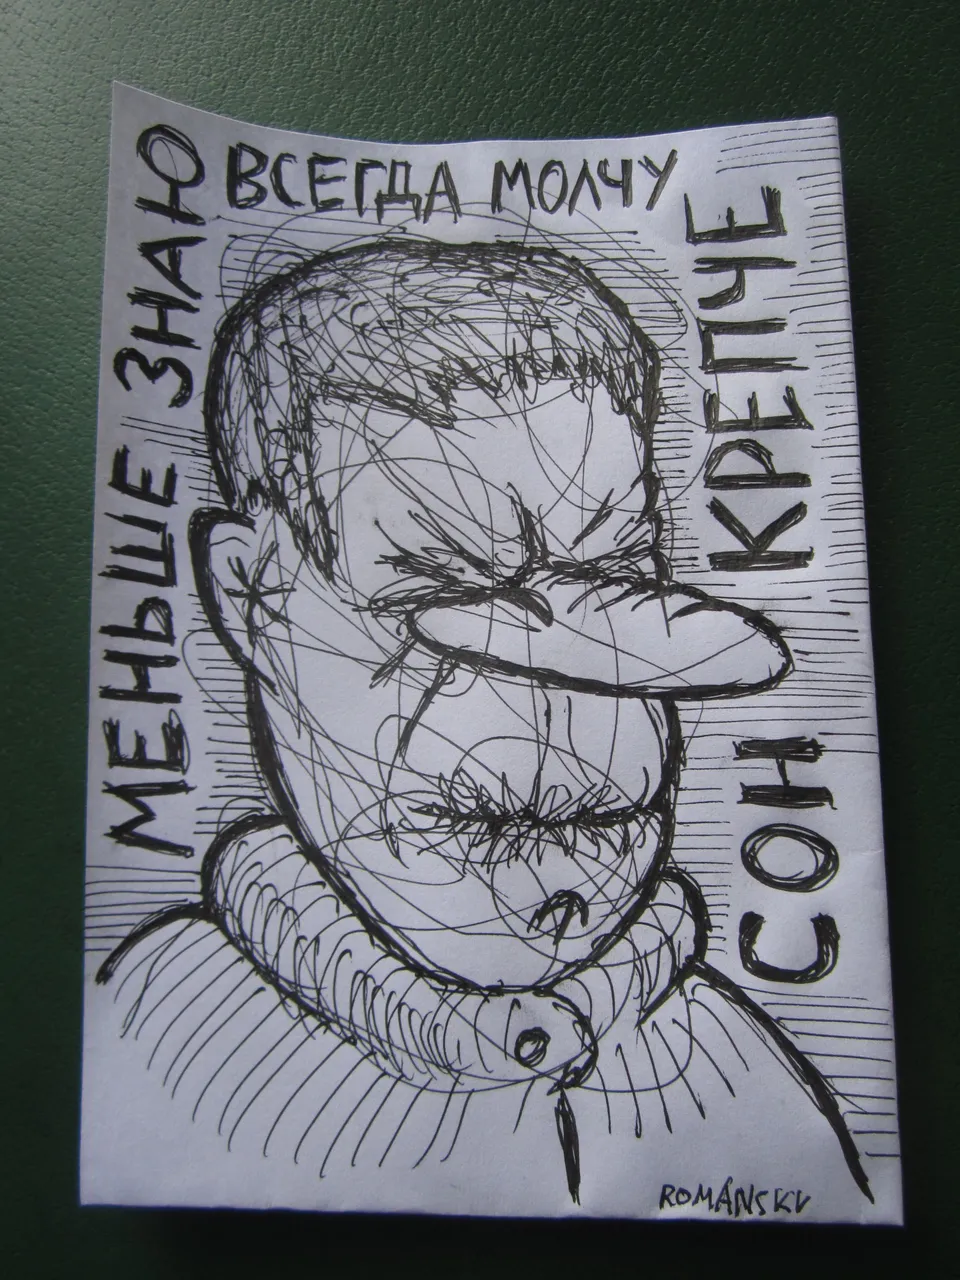 МЕНЬШЕ ЗНАЮ
ВСЕГДА МОЛЧУ
СОН КРЕПЧЕ
ROMÁNSKV